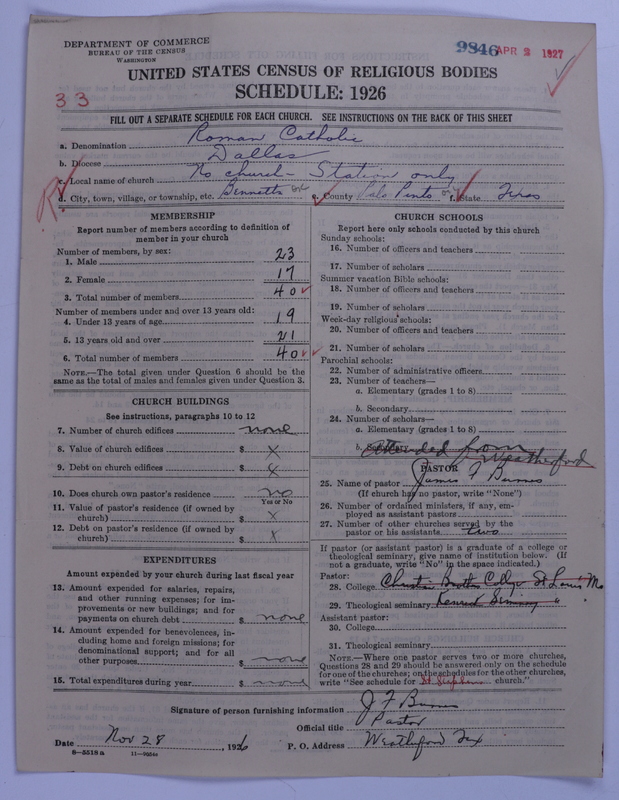 DEPARTMENT OF COMMERCE
BUREAU OF THE CENSUS
WASHINGTON
9846 APR 2 1927
UNITED STATES CENSUS OF RELIGIOUS BODIES
SCHEDULE: 1926
33
FILL OUT A SEPARATE SCHEDULE FOR EACH CHURCH. SEE INSTRUCTIONS ON THE BACK OF THIS SHEET
a. Denomination Roman Catholic
b. Diocese Dallas
c. Local name of church No church - Station only
d. City, town, village, or township, etc. Bennetts e. County Palo Pinto f. State Texas
MEMBERSHIP
Report number of members according to definition of
member in your church
Number of members, by sex:
1. Male 23
2. Female 17
3. Total number of members 40
Number of members under and over 13 years old:
4. Under 13 years of age 19
5. 13 years old and over 21
6. Total number of members 40
NOTE.—The total given under Question 6 should be the
same as the total of males and females given under Question 3.
CHURCH BUILDINGS
See instructions, paragraphs 10 to 12
7. Number of church edifices none
8. Value of church edifices $ x
9. Debt on church edifices $ x
10. Does church own pastor's residence no
Yes or No
11. Value of pastor's residence (if owned by
church) $ x
12. Debt on pastor's residence (if owned by
church) $ x
EXPENDITURES
Amount expended by your church during last fiscal year
13. Amount expended for salaries, repairs,
and other running expenses; for im-
provements or new buildings; and for
payments on church debt $ none
14. Amount expended for benevolences, in-
cluding home and foreign missions; for
denominational support; and for all
other purposes $ none
15. Total expenditures during year $ none
CHURCH SCHOOLS
Report here only schools conducted by this church
Sunday schools:
16. Number of officers and teachers
17. Number of scholars
Summer vacation Bible schools:
18. Number of officers and teachers
19. Number of scholars
Week-day religious schools:
20. Number of officers and teachers
21. Number of scholars
Parochial schools:
22. Number of administrative officers
23. Number of teachers—
a. Elementary (grades 1 to 8)
b. Secondary
24. Number of scholars—
a. Elementary (grades 1 to 8)
b. Secondary Attended from
Weatherford
PASTOR
25. Name of pastor James F Burns
(If church has no pastor, write "None")
26. Number of ordained ministers, if any, em-
ployed as assistant pastors
27. Number of other churches served by the
pastor or his assistants two
If pastor (or assistant pastor) is a graduate of a college or
theological seminary, give name of institution below. (If
not a graduate, write "No" in the space indicated.)
Pastor:
28. College Christian Brothers College St Louis Mo
29. Theological seminary Kenrick Seminary "
Assistant pastor:
30. College
31. Theological seminary
NOTE.—Where one pastor serves two or more churches,
Questions 28 and 29 should be answered only on the schedule
for one of the churches; on the schedules for the other churches,
write "See schedule for St Stephens church."
Signature of person furnishing information J F Burns
Official title Pastor
Date Nov 28, 1926 P. O. Address Weatherford Tex
8—5518 a